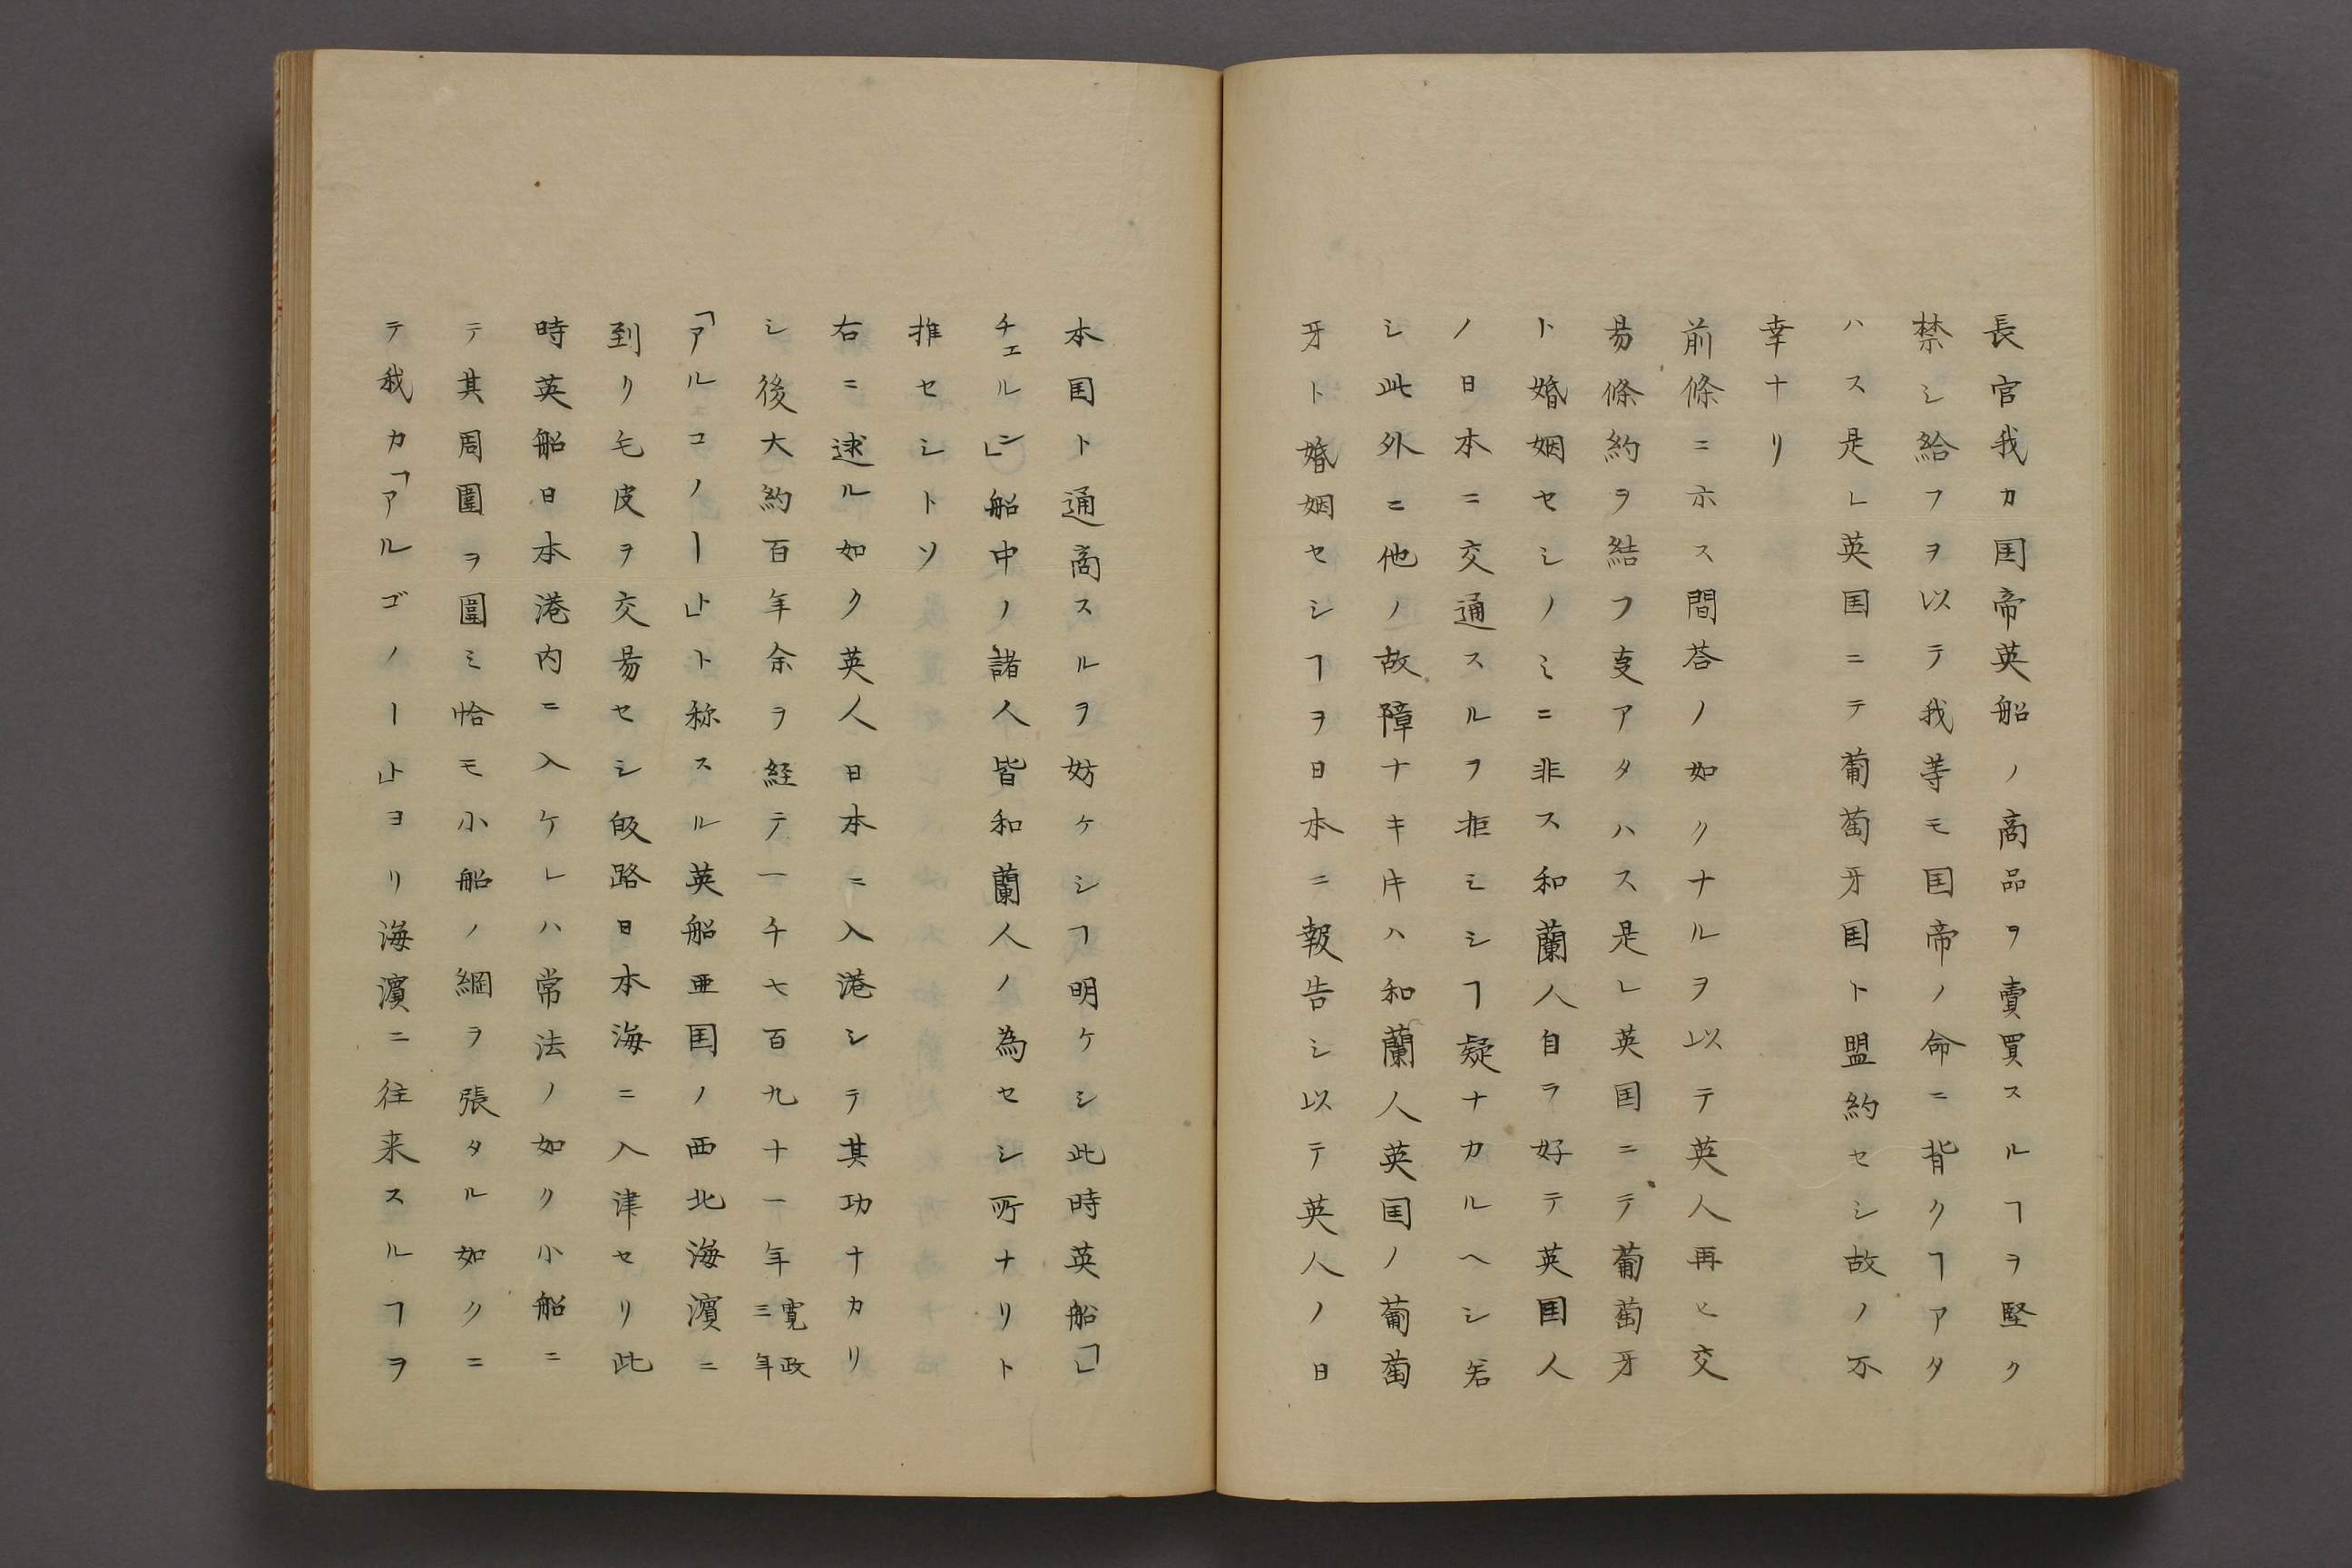 長官我カ国帝英船ノ商品ヲ賣買スルヿヲ堅ク
禁シ給フヲ以テ我等モ国帝ノ命ニ背クヿアタ
ハス是レ英国ニテ葡萄牙国ト盟約セシ故ノ不
幸ナリ
前條ニ示ス問答ノ如クナルヲ以テ英人再ヒ交
易條約ヲ結フ支アタハス是レ英国ニテ葡萄牙
ト婚姻セシノミニ非ス和蘭人自ラ好テ英国人
ノ日本ニ交通スルヲ拒ミシヿ疑ナカルヘシ若
シ此外ニ他ノ故障ナキ𪜈ハ和蘭人英国ノ葡萄
牙ト婚姻セシヿヲ日本ニ報告シ以テ英人ノ日
本国ト通商スルヲ妨ケシヿ明ケシ此時英船「レ
チェルン」船中ノ諸人皆和蘭人ノ為セシ所ナリト
推セシトソ
右ニ逑ル如ク英人日本ニ入港シテ其功ナカリ
シ後大約百年余ヲ経テ一千七百九十一年寛政三年
「アルコノート」ト称スル英船亜国ノ西北海濵ニ
到リ毛皮ヲ交易セシ皈路日本海ニ入津セリ此
時英船日本港内ニ入ケレハ常法ノ如ク小船ニ
テ其周圍ヲ圍ミ恰モ小船ノ綱ヲ張タル如クニ
テ我カ「アルゴノート」ヨリ海濵ニ往来スルヿヲ